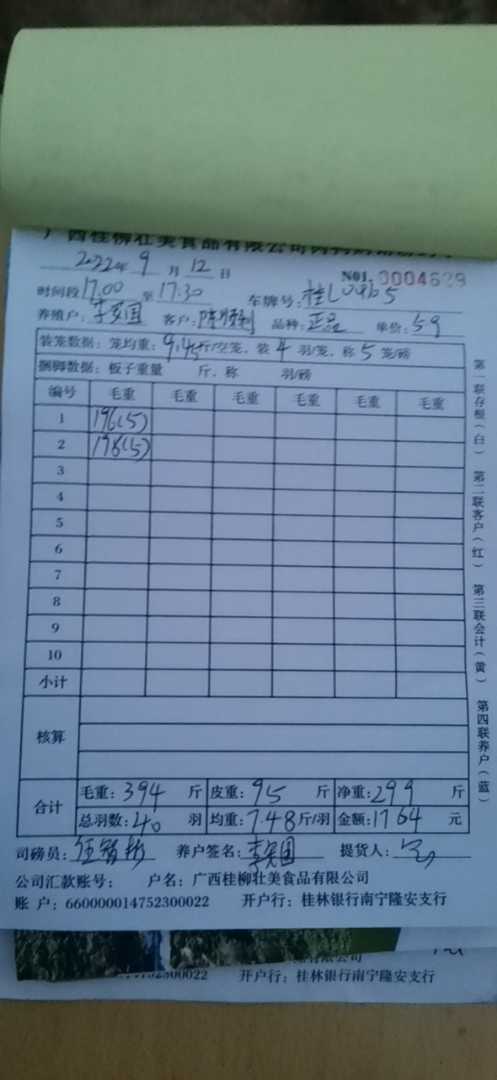 广西桂柳壮美食品有限公司
2022年 9 月 12 日
NO1. 0004629
时间段 17.00 至 17.30 车牌号:
养殖户: 客户: 品种: 正品 单价: 5.9
装笼数据: 笼均重: 9.45斤/空笼, 装 4 羽/笼, 称 5 笼/磅
捆脚数据: 板子重量 斤, 称 羽/磅
编号 毛重 毛重 毛重 毛重 毛重 毛重
1 196(5)
2 198(5)
3
4
5
6
7
8
9
10
小计
核算
合计 毛重: 394 斤 皮重: 95 斤 净重: 299 斤
总羽数: 40 羽 均重: 7.48 斤/羽 金额: 1764 元
司磅员: 养户签名: 提货人:
公司汇款账号: 户名: 广西桂柳壮美食品有限公司
账 户: 660000014752300022 开户行: 桂林银行南宁隆安支行
第一联存根(白) 第二联客户(红) 第三联会计(黄) 第四联养户(蓝)
4752300022 开户行: 桂林银行南宁隆安支行